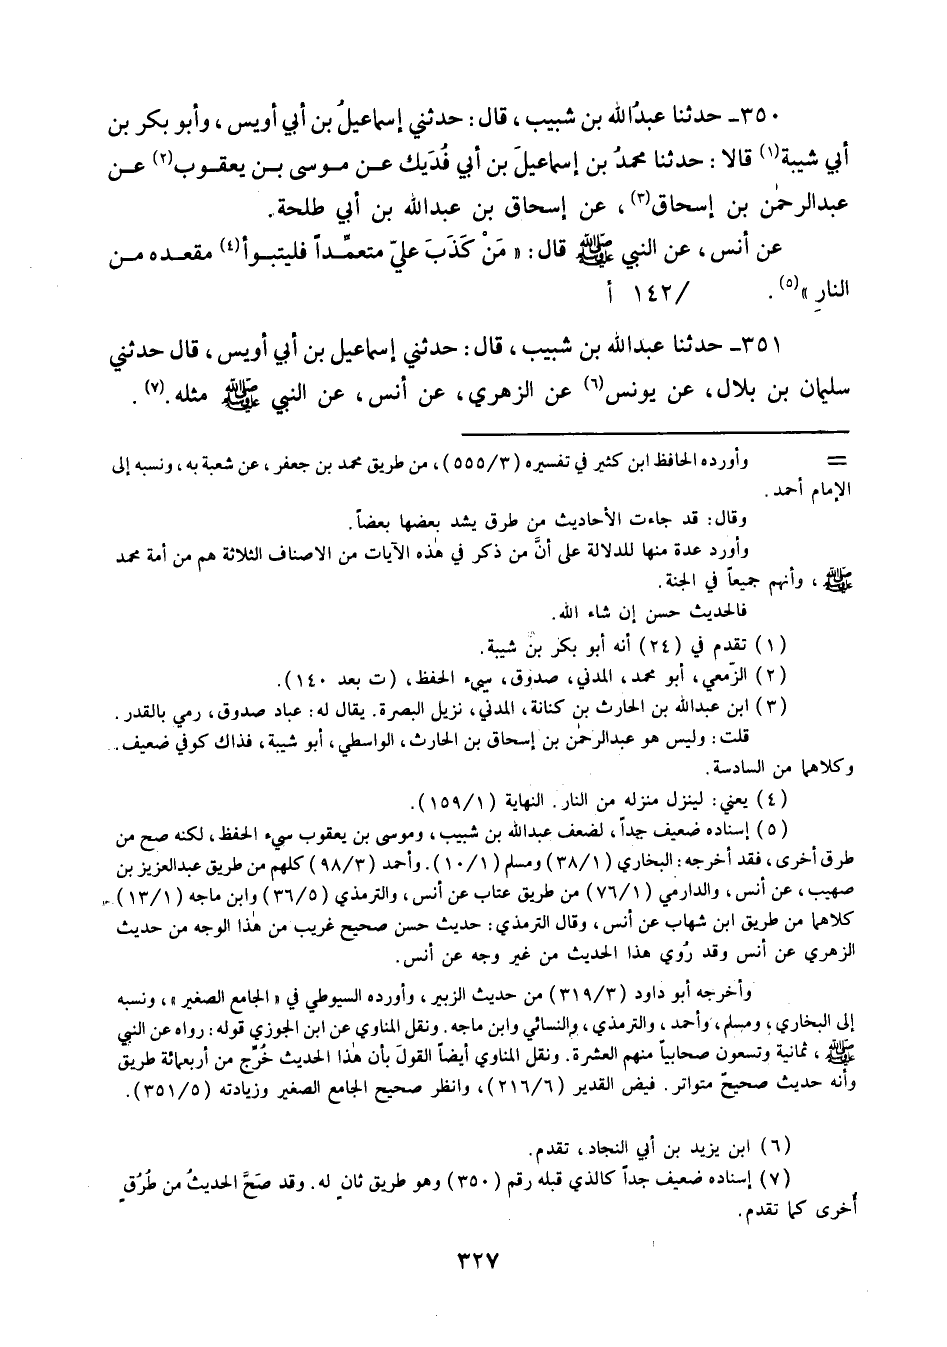 ٣٥٠ـ حدثنا عبدُالله بن شبيب، قال: حدثني إسماعيلُ بن أبي أويس، وأبو بكر بن
أبي شيبة(١) قالا: حدثنا محمدُ بن إسماعيلَ بن أبي فُدَيك عـن موسى بـن يعقوب(٢) عـن
عبدالرحمٰن بن إسحاق(٣)، عن إسحاق بن عبدالله بن أبي طلحة.
عن أنس، عن النبي ﷺ قال: « مَنْ كَذَبَ عليّ متعمِّـداً فليتبـوأ(٤) مقعـده مـن
النارِ »(٥). /١٤٢ أ
٣٥١ـ حدثنا عبدالله بن شبيب، قال: حدثني إسماعيل بن أبي أويس، قال حدثني
سليمان بن بلال، عن يونس(٦) عن الزهري، عن أنس، عن النبي ﷺ مثله.(٧).
= وأورده الحافظ ابن كثير في تفسيره (٥٥٥/٣)، من طريق محمد بن جعفر، عن شعبة به، ونسبه إلى
الإمام أحمد.
وقال: قد جاءت الأحاديث من طرق يشد بعضها بعضاً.
وأورد عدة منها للدلالة على أنَّ من ذكر في هٰذه الآيات من الاصناف الثلاثة هم من أمة محمد
ﷺ، وأنهم جميعاً في الجنة.
فالحديث حسن إن شاء الله.
(١) تقدم في (٢٤) أنه أبو بكر بن شيبة.
(٢) الزّمعي، أبو محمد، المدني، صدوق، سيء الحفظ، (ت بعد ١٤٠).
(٣) ابن عبدالله بن الحارث بن كنانة، المدني، نزيل البصرة. يقال له: عباد صدوق، رمي بالقدر.
قلت: وليس هو عبدالرحمٰن بن إسحاق بن الحارث، الواسطي، أبو شيبة، فذاك كوفي ضعيف.
وكلاهما من السادسة.
(٤) يعني: لينزل منزله من النار. النهاية (١٥٩/١).
(٥) إسناده ضعيف جداً، لضعف عبدالله بن شبيب، وموسى بن يعقوب سيء الحفظ، لكنه صح من
طرق أخرى، فقد أخرجه: البخاري (٣٨/١) ومسلم (١٠/١). وأحمد (٩٨/٣) كلهم من طريق عبدالعزيز بن
صهيب، عن أنس، والدارمي (٧٦/١) من طريق عتاب عن أنس، والترمذي (٣٦/٥) وابن ماجه (١٣/١)
كلاهما من طريق ابن شهاب عن أنس، وقال الترمذي: حديث حسن صحيح غريب من هٰذا الوجه من حديث
الزهري عن أنس وقد رُوي هذا الحديث من غير وجه عن أنس.
وأخرجه أبو داود (٣١٩/٣) من حديث الزبير، وأورده السيوطي في « الجامع الصغير »، ونسبه
إلى البخاري، ومسلم، وأحمد، والترمذي، والنسائي وابن ماجه. ونقل المناوي عن ابن الجوزي قوله: رواه عن النبي
ﷺ، ثمانية وتسعون صحابياً منهم العشرة. ونقل المناوي أيضاً القولَ بأن هٰذا الحديث خُرِّج من أربعمائة طريق
وأنه حديث صحيحٌ متواتر. فيض القدير (٢١٦/٦)، وانظر صحيح الجامع الصغير وزيادته (٣٥١/٥).
(٦) ابن يزيد بن أبي النجاد، تقدم.
(٧) إسناده ضعيف جداً كالذي قبله رقم (٣٥٠) وهو طريق ثانٍ له. وقد صَحَّ الحديثُ من طُرُقٍ
أخرى كما تقدم.
٣٢٧